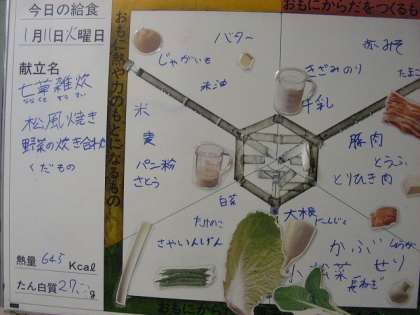 今日の給食
1月11日火曜日
献立名
七草雑炊
松風焼き
野菜の炊き合わせ
くだもの
熱量 645 Kcal
たん白質 27. g
おもに熱や力のもとになるもの
おもにからだをつくるも
バター
じゃがいも
米油
米
麦
パン粉
さとう
赤みそ
きざみのり
たまご
牛乳
豚肉
とうふ
とりひき肉
白菜
たけのこ
さやいんげん
大根
にんじん
かぶ
しょうが
小松菜
せり
長ねぎ